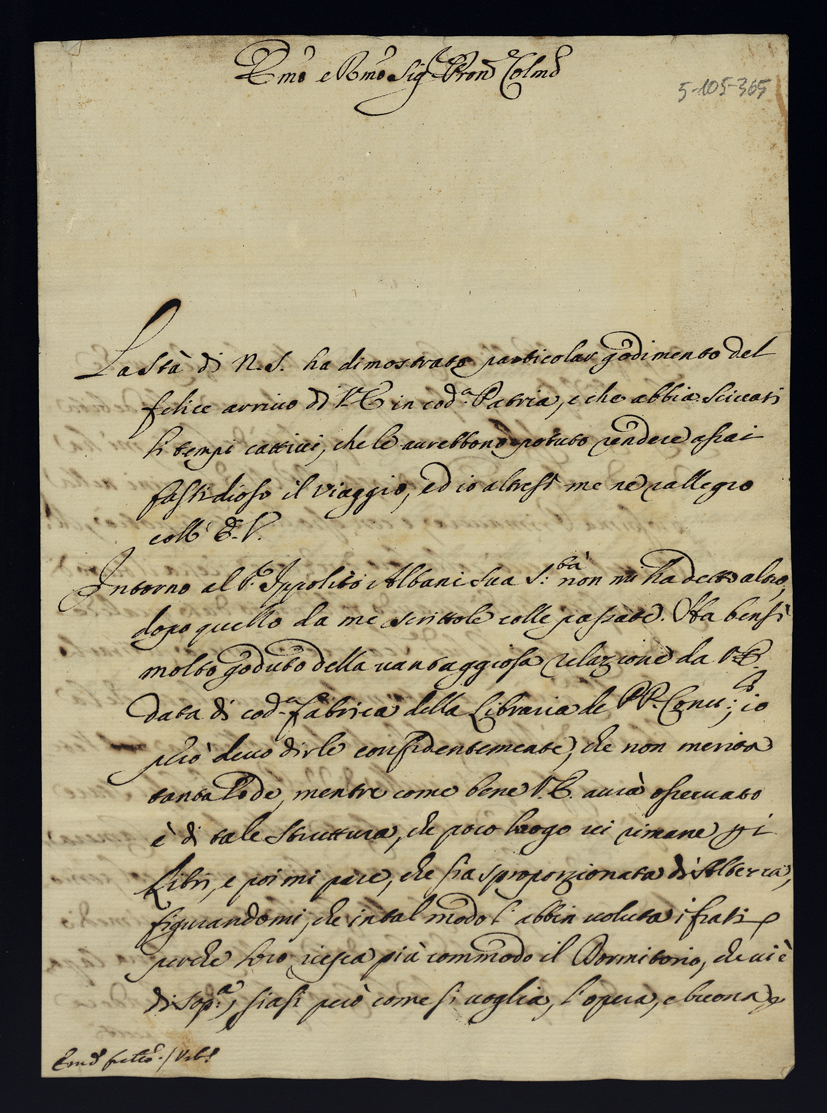 Emo e Rmo Sigr Pron Colmo
5-105-365
La Stà di N. S. ha dimostrato particolar godimento del
felice arrivo di V.E. in coda Patria, e che abbia sciivati
li tempi cattivi, che le aurebbono potuto rendere assai
fastidioso il viaggio, ed io altresì me ne rallegro
coll' E. V.
Intorno al P. Ippolito Albani sua S.tà non mi ha detto altro,
dopo quello da me scrittole colle passate. Ha bensì
molto goduto della vantaggiosa relazione da V.E.
data di coda fabrica della Libraria de PP. Conv.; io
però devo dirle confidentemente, che non merita
tanta Lode, mentre come bene V.E. aurà osservato
è di tale struttura, che poco luogo vi rimane pi
Libri, e poi mi pare, che sia sproporzionata di Alteza,
figurandomi, che in tal modo l' abbin voluta i frati
perche loro riesca più commodo il Dormitorio, che vi è
di sopa, siasi però come si voglia, l'opera, e buona